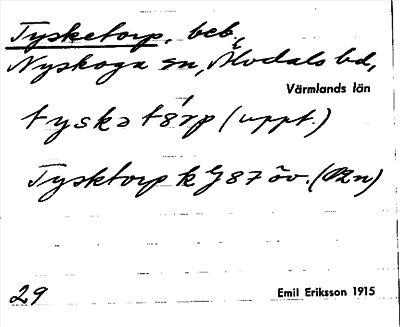 Tysketorp, beb.,
Nyskoga sn, Älvdals hd,
Värmlands län
tyskə tórp (uppt.)
Tysktorp k G 87 öv. (Rn)
29
Emil Eriksson 1915